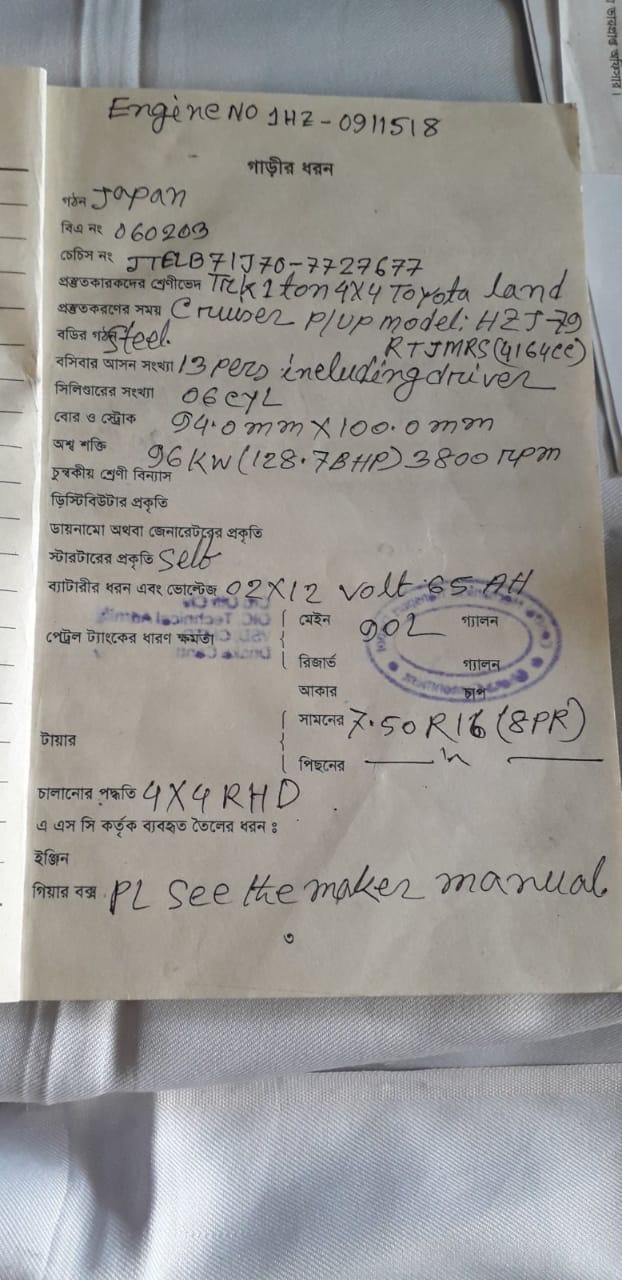 র ভারপ্রাপ্ত অফিসার।
Engine NO 1HZ - 0911518
গাড়ীর ধরন
গঠন Japan
বিএ নং 060203
চেচিস নং JTELB71J70-7727677
প্রস্তুতকারকদের শ্রেণীভেদ Trk 1 ton 4X4 Toyota land
প্রস্তুতকরণের সময় Cruiser P/up model: HZJ-79
বডির গঠন Steel. RTJMRS(4164cc)
বসিবার আসন সংখ্যা 13 pers including driver
সিলিণ্ডারের সংখ্যা 06 cyL
বোর ও স্ট্রোক 94.0mm X 100.0 mm
অশ্ব শক্তি 96KW (128.7BHP) 3800 rpm
চুম্বকীয় শ্রেণী বিন্যাস
ডিস্টিবিউটার প্রকৃতি
ডায়নামো অথবা জেনারেটরের প্রকৃতি
স্টারটারের প্রকৃতি Self
ব্যাটারীর ধরন এবং ভোল্টেজ 02X12 volt 65 AH
মেইন 90L গ্যালন
পেট্রল ট্যাংকের ধারণ ক্ষমতা
রিজার্ভ গ্যালন
আকার চাপ
সামনের 7.50 R16 (8PR)
টায়ার
পিছনের
চালানোর পদ্ধতি 4X4 RHD
এ এস সি কর্তৃক ব্যবহৃত তৈলের ধরন :
ইঞ্জিন
গিয়ার বক্স PL See the maker manual
৩